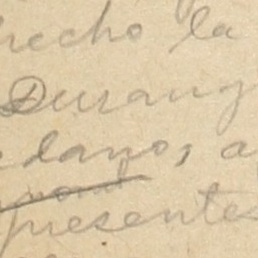 recho la
Durang
edano, a
presentes